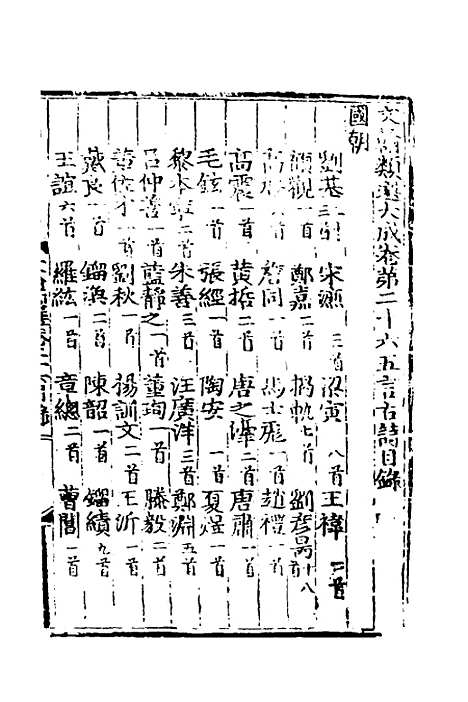 文翰類選大成卷第二十六五言古詩目錄
國朝
劉基 宋濂 三首 沈寅 八首 王禕 二首
顧觀 一首 鄭嘉 二首 揭軌 七首 劉彥昺 十八首
詹同 一首 趙禮 一首
高震 一首 黃哲 二首 唐之淳 二首 唐肅 一首
毛鉉 一首 張經 一首 陶安 一首 夏煜 一首
黎 二首 朱善 三首 汪廣洋 三首 鄭淵 五首
呂仲善 一首 藍靜之 一首 董珣 一首 滕毅 二首
劉秋 一首 楊訓文 二首 王沂 一首
良 一首 鎦渙 二首 陳韶 一首 鎦績 九首
王誼 六首 羅紘 一首 章總 二首 曹閏 一首